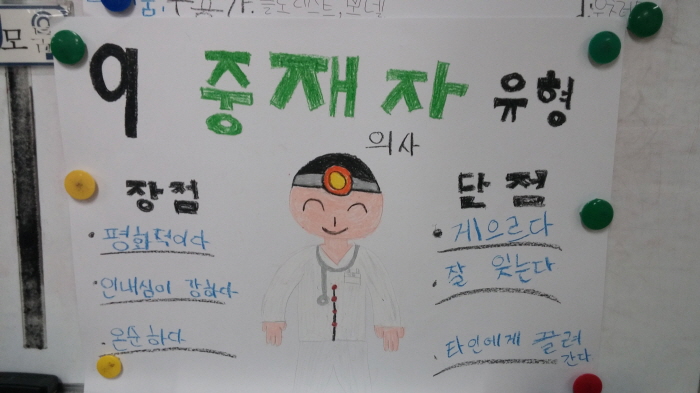 모
9 중재자 유형
의사
장점
• 평화적이다
• 인내심이 강하다
• 온순하다
단점
• 게으르다
• 잘 잊는다
• 타인에게 끌려
간다